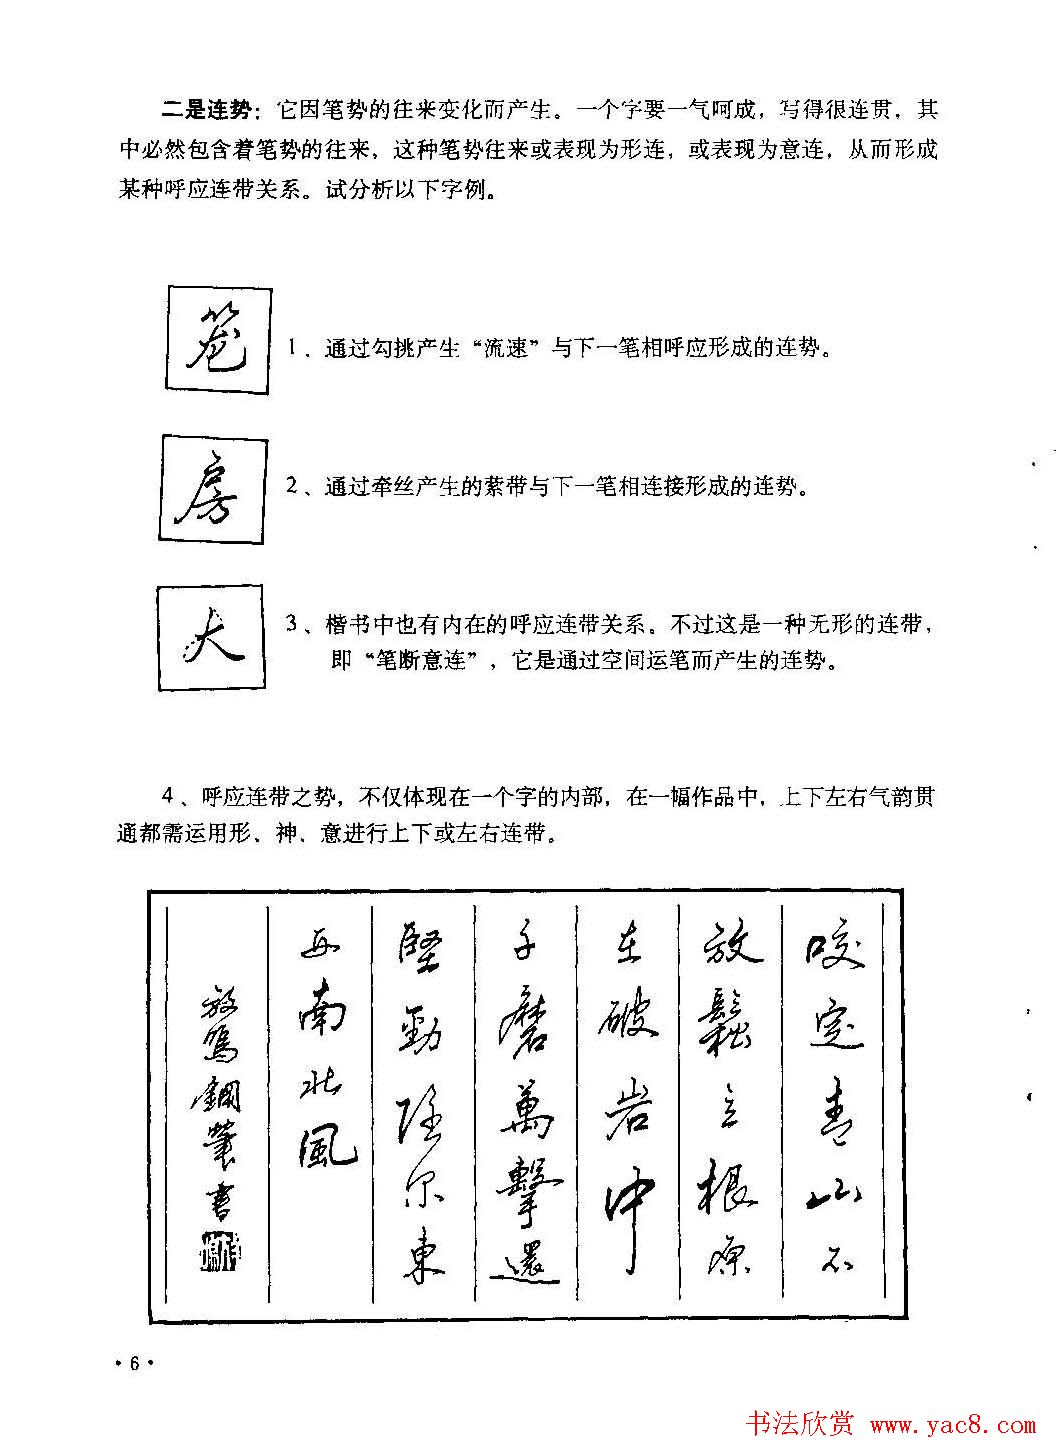 二是连势：它因笔势的往来变化而产生。一个字要一气呵成，写得很连贯，其
中必然包含着笔势的往来，这种笔势往来或表现为形连，或表现为意连，从而形成
某种呼应连带关系。试分析以下字例。
笼
1、通过勾挑产生“流速”与下一笔相呼应形成的连势。
房
2、通过牵丝产生的萦带与下一笔相连接形成的连势。
大
3、楷书中也有内在的呼应连带关系。不过这是一种无形的连带，
即“笔断意连”，它是通过空间运笔而产生的连势。
4、呼应连带之势，不仅体现在一个字的内部，在一幅作品中，上下左右气韵贯
通都需运用形、神、意进行上下或左右连带。
咬定青山不
放鬆立根原
在破岩中
千磨萬擊還
堅勁任尔東
西南北風
放鸣鋼筆書
·6·
书法欣赏 www.yac8.com